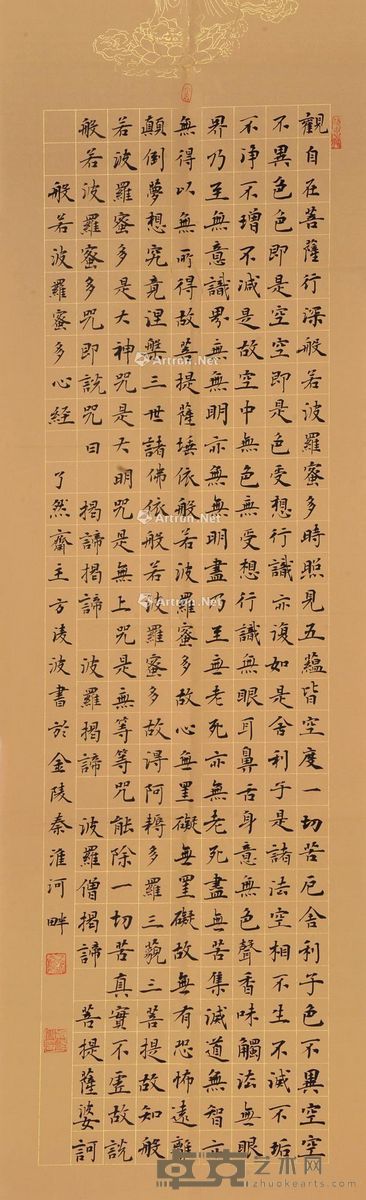 觀自在菩薩行深般若波羅蜜多時照見五蘊皆空度一切苦厄舍利子色不異空空
不異色色即是空空即是色受想行識亦復如是舍利子是諸法空相不生不滅不垢
不淨不增不減是故空中無色無受想行識無眼耳鼻舌身意無色聲香味觸法無眼
界乃至無意識界無無明亦無無明盡乃至無老死亦無老死盡無苦集滅道無智亦
無得以無所得故菩提薩埵依般若波羅蜜多故心無罣礙無罣礙故無有恐怖遠離
顛倒夢想究竟涅槃三世諸佛依般若波羅蜜多故得阿耨多羅三藐三菩提故知般
若波羅蜜多是大神咒是大明咒是無上咒是無等等咒能除一切苦真實不虛故說
般若波羅蜜多咒即說咒曰 揭諦揭諦 波羅揭諦 波羅僧揭諦 菩提薩婆訶
般若波羅蜜多心經 了然齋主方淩波書於金陵秦淮河畔
Artron.Net
Artron.Net
Artron.Net
卓克艺术网
zhuokearts.com